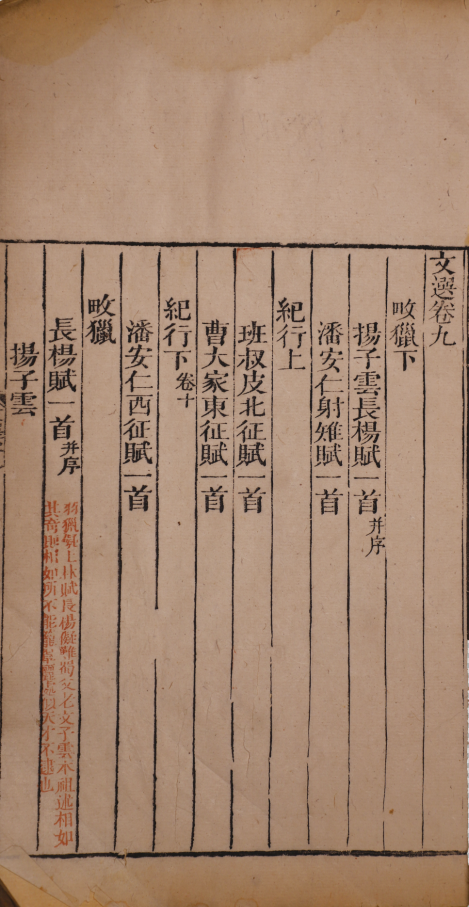 文選卷九
畋獵下
揚子雲長楊賦一首并序
潘安仁射雉賦一首
紀行上
班叔皮北征賦一首
曹大家東征賦一首
紀行下卷十
潘安仁西征賦一首
畋獵
長楊賦一首并序
羽獵擬上林賦長楊擬難蜀父老文子雲亦祖述相如
其奇
相如所不能
不逮也
揚子雲